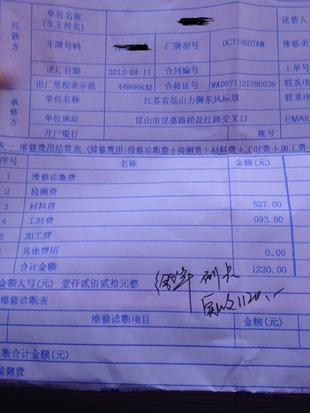 托修方
单位名称
(车主姓名)
送修人
车牌号码
厂牌型号
DC7146DTAM
维修类
送厂日期
2015-04-11
合同编号
工单号
出厂里程表示值
44868KM
合格证号
联系电
承修方
单位名称
江苏省昆山力狮东风标致
联系电
单位地址
昆山市昆嘉路松花江路交叉口
EMAI
开户银行
帐号
表一 维修费用结算表 (维修费用=维修诊断费+检测费+材料费+工时费+加工费
序号 名称 金额(元)
1 维修诊断费
2 检测费
3 材料费 527.00
4 工时费 693.00
5 加工费
6 其他费用 0.00
合计金额 1220.00
金额大写(元) 壹仟贰佰贰拾元整
维修诊断表
维修诊断项目 金额(元)
断合计金额(元)
检测费